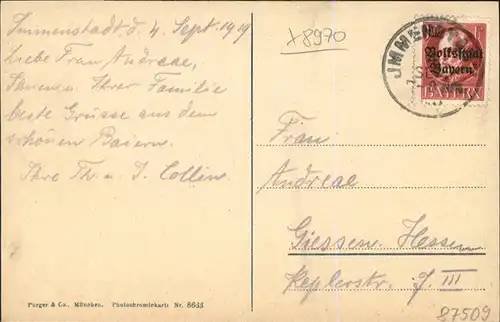 Immenstadt, d. 4. Sept. 1919
Liebe Frau Andreae,
Ihnen u. Ihrer Familie
beste Grüsse aus dem
schönen Baiern.
Ihre Th. u. J. Collin.
x8970
JMMEN
Volksstaat
Bayern
BAYERN
Frau
Andreae
Giessen. Hessen
Keplerstr. 7. III
Purger & Co., München. Photochromiekarte Nr. 8643
87509